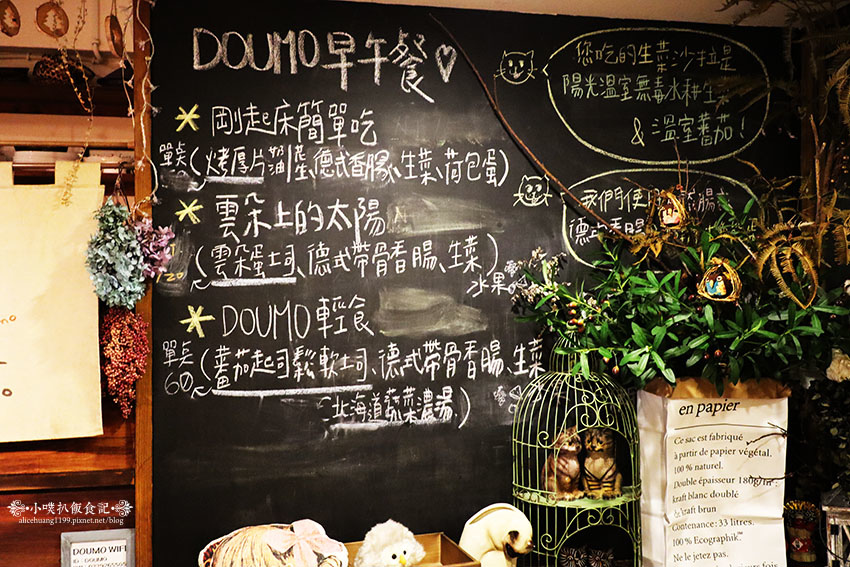 DOUMO早午餐
您吃的生菜沙拉是
陽光溫室無毒水耕生菜
&溫室蕃茄!
剛起床簡單吃
單點(烤厚片、德式香腸、生菜、荷包蛋)
我們使用
德式香腸
雲朵上的太陽
120(雲朵蛋土司、德式帶骨香腸、生菜)
水果
DOUMO輕食
單點(蕃茄起司鬆軟土司、德式帶骨香腸、生菜
60
北海道蔬菜濃湯)
en papier
Ce sac est fabriqué
à partir de papier végétal,
100% naturel.
Double épaisseur 180g/m²:
kraft blanc doublé
de kraft brun
Contenance: 33 litres.
100% Ecographik™
Ne le jetez pas.
DOUMO WIFI
小噗趴飯食記
alicehuang1199.pixnet.net/blog